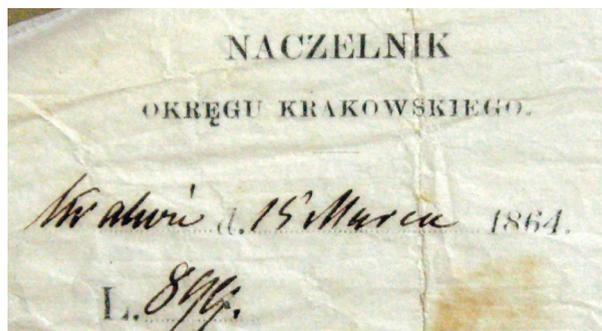 NACZELNIK
OKRĘGU KRAKOWSKIEGO.
d. 15 Marca 1864.
L.